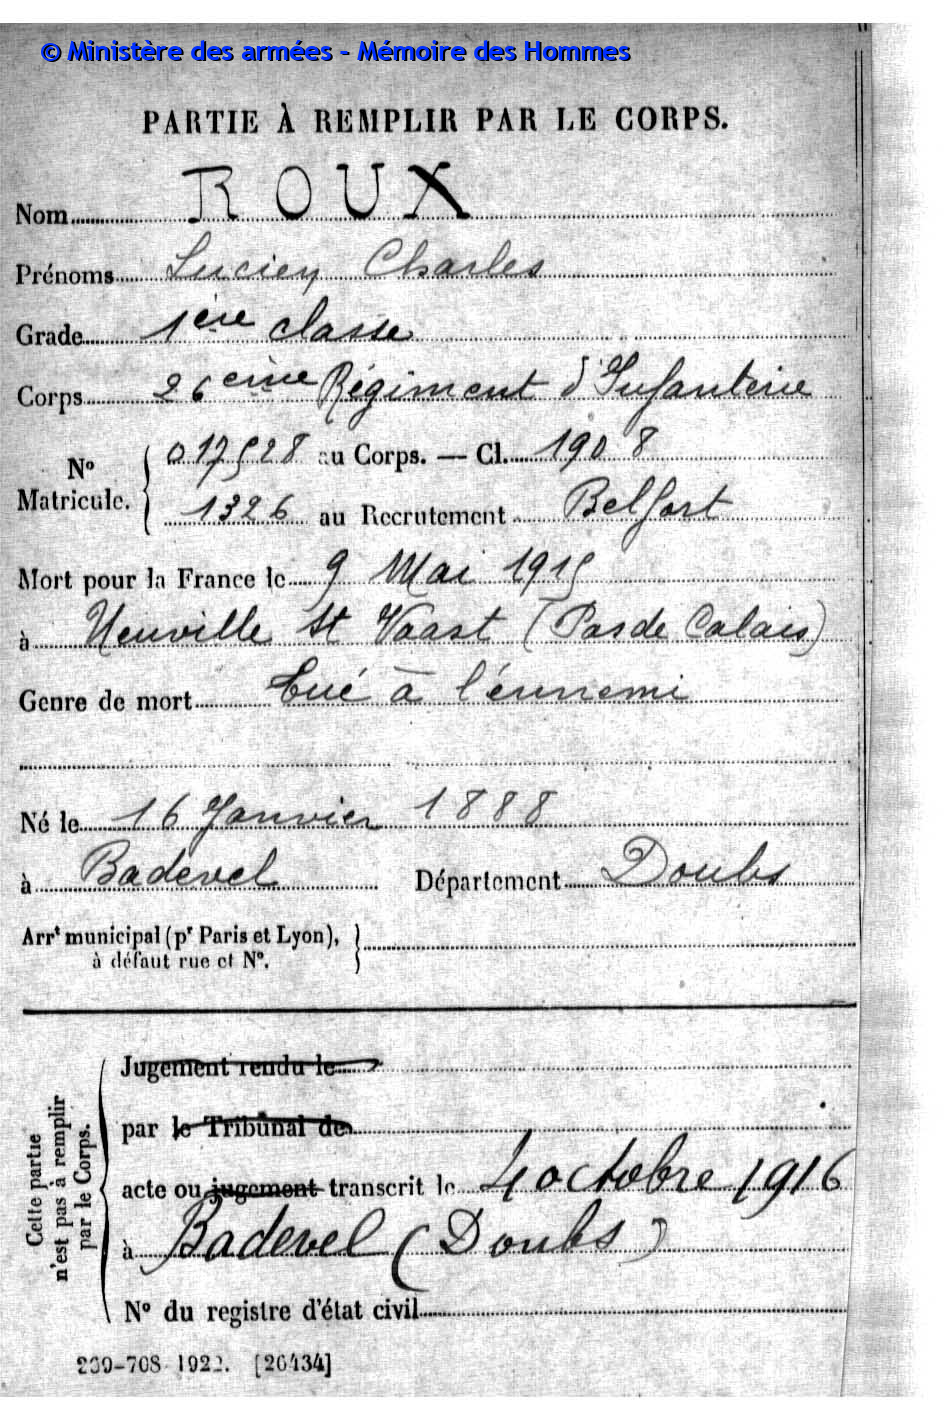 © Ministère des armées - Mémoire des Hommes
PARTIE À REMPLIR PAR LE CORPS.
Nom ROUX
Prénoms Lucien Charles
Grade 1ère classe
Corps 26ème Régiment d'Infanterie
No Matricule. { 017528 au Corps. — Cl. 1908
1326 au Recrutement Belfort
Mort pour la France le 9 Mai 1915
à Neuville St Vaast (Pas de Calais)
Genre de mort Tué à l'ennemi
Né le 16 Janvier 1888
à Badevel Département Doubs
Arrt municipal (pr Paris et Lyon), }
à défaut rue et No.
Cette partie n'est pas à remplir par le Corps. {
Jugement rendu le
par le Tribunal de
acte ou jugement transcrit le 4 octobre 1916
à Badevel (Doubs)
No du registre d'état civil
239-708 1922. [26434]